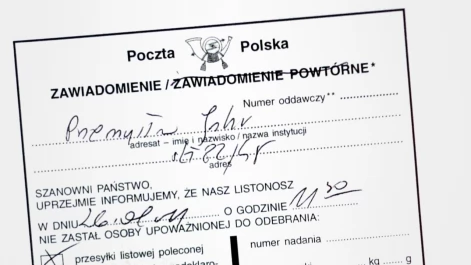 Poczta Polska
ZAWIADOMIENIE / ZAWIADOMIENIE POWTÓRNE*
Numer oddawczy**
adresat – imię i nazwisko / nazwa instytucji
adres
SZANOWNI PAŃSTWO,
UPRZEJMIE INFORMUJEMY, ŻE NASZ LISTONOSZ
W DNIU O GODZINIE 11 30
NIE ZASTAŁ OSOBY UPOWAŻNIONEJ DO ODEBRANIA:
przesyłki listowej poleconej
numer nadania
kg g